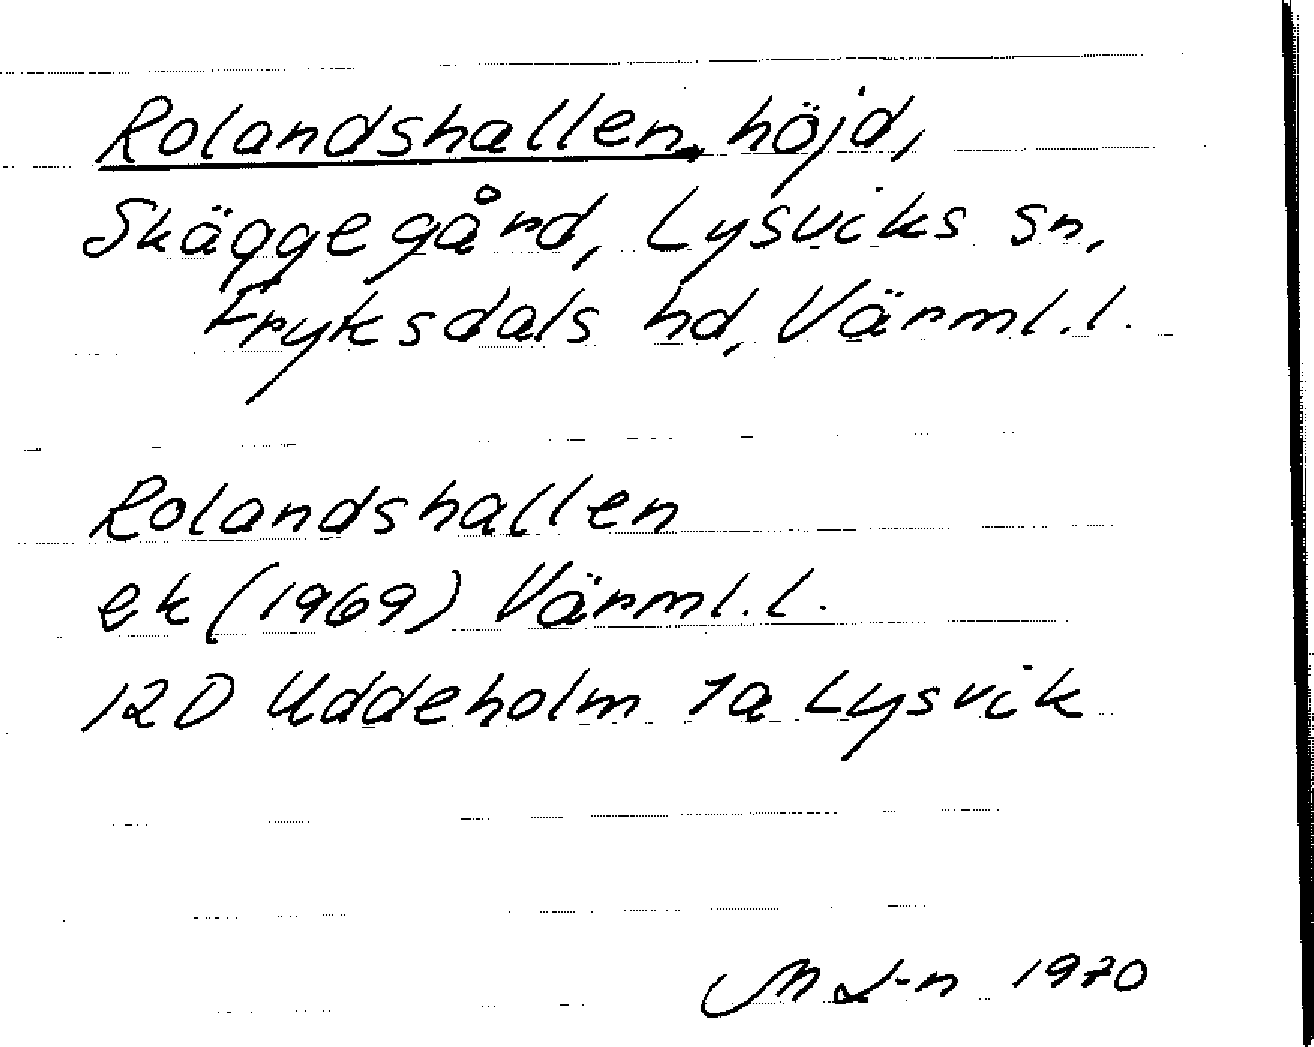 Rolandshallen, höjd,
Skäggegård, Lysviks sn,
Fryksdals hd, Värml.l.
Rolandshallen
ek (1969) Värml.l.
12D Uddeholm 1a Lysvik
M L-n 1970